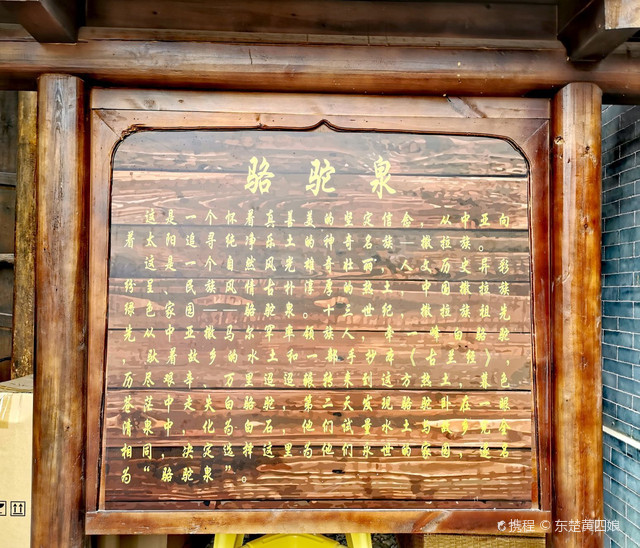 骆驼泉
这是一个怀着真善美的坚定信念，从中亚向
着太阳追寻纯净乐土的神奇名族——撒拉族。
这是一个自然风光神奇壮丽，人文历史异彩
纷呈、民族风情古朴淳厚的热土，中国撒拉族
绿色家园——骆驼泉。十三世纪，撒拉族祖先
先从中亚撒马尔罕率领族人，牵一峰白骆驼
，驮着故乡的水土和一部手抄本（古兰经），
历尽艰辛、万里迢迢辗转来到这方热土，暮色
苍茫中走失白骆驼，第二天发现骆驼卧在一眼
清泉中，化为白石，他们试量水土与故乡完全
相同，决定选择这里为他们永世的家园，遂名
为“骆驼泉”。
携程 © 东楚黄四娘